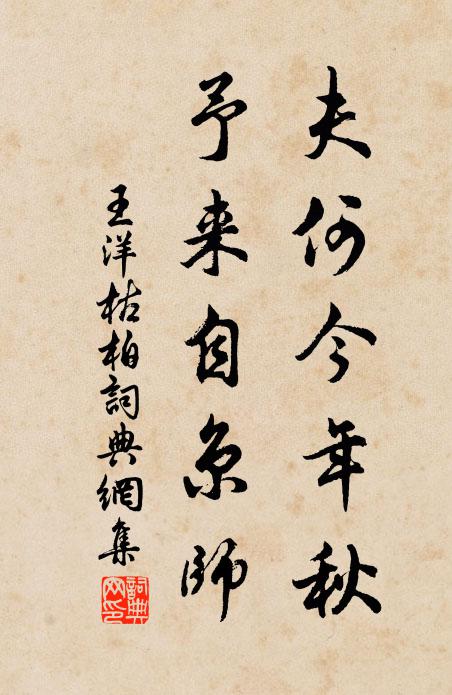 夫何今年秋
予来自京師
王洋枯柏詞典網集
詞典网印